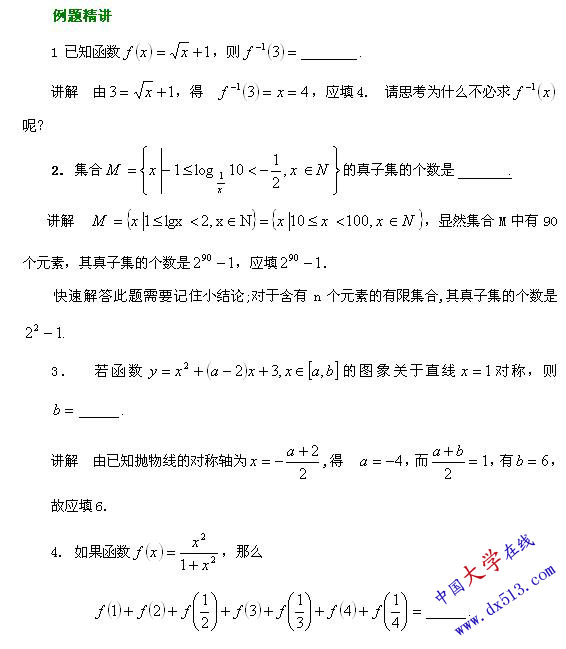 例题精讲
1 已知函数 f(x)=√x+1，则 f⁻¹(3)= ______ .
讲解 由 3=√x+1，得 f⁻¹(3)=x=4，应填4． 请思考为什么不必求 f⁻¹(x)
呢？
2．集合 M={x|-1≤log_{1/x}10<-1/2, x∈N} 的真子集的个数是 ______ .
讲解 M={x|1≤lgx<2,x∈N}={x|10≤x<100,x∈N}，显然集合 M 中有 90
个元素，其真子集的个数是 2⁹⁰-1，应填 2⁹⁰-1．
快速解答此题需要记住小结论;对于含有 n 个元素的有限集合,其真子集的个数是
2²-1.
3． 若函数 y=x²+(a-2)x+3,x∈[a,b] 的图象关于直线 x=1 对称，则
b= ______ .
讲解 由已知抛物线的对称轴为 x=-(a+2)/2 ,得 a=-4，而 (a+b)/2=1，有 b=6，
故应填6．
4． 如果函数 f(x)=x²/(1+x²)，那么
f(1)+f(2)+f(1/2)+f(3)+f(1/3)+f(4)+f(1/4)= ______ .
中国大学在线
www.dx513.com